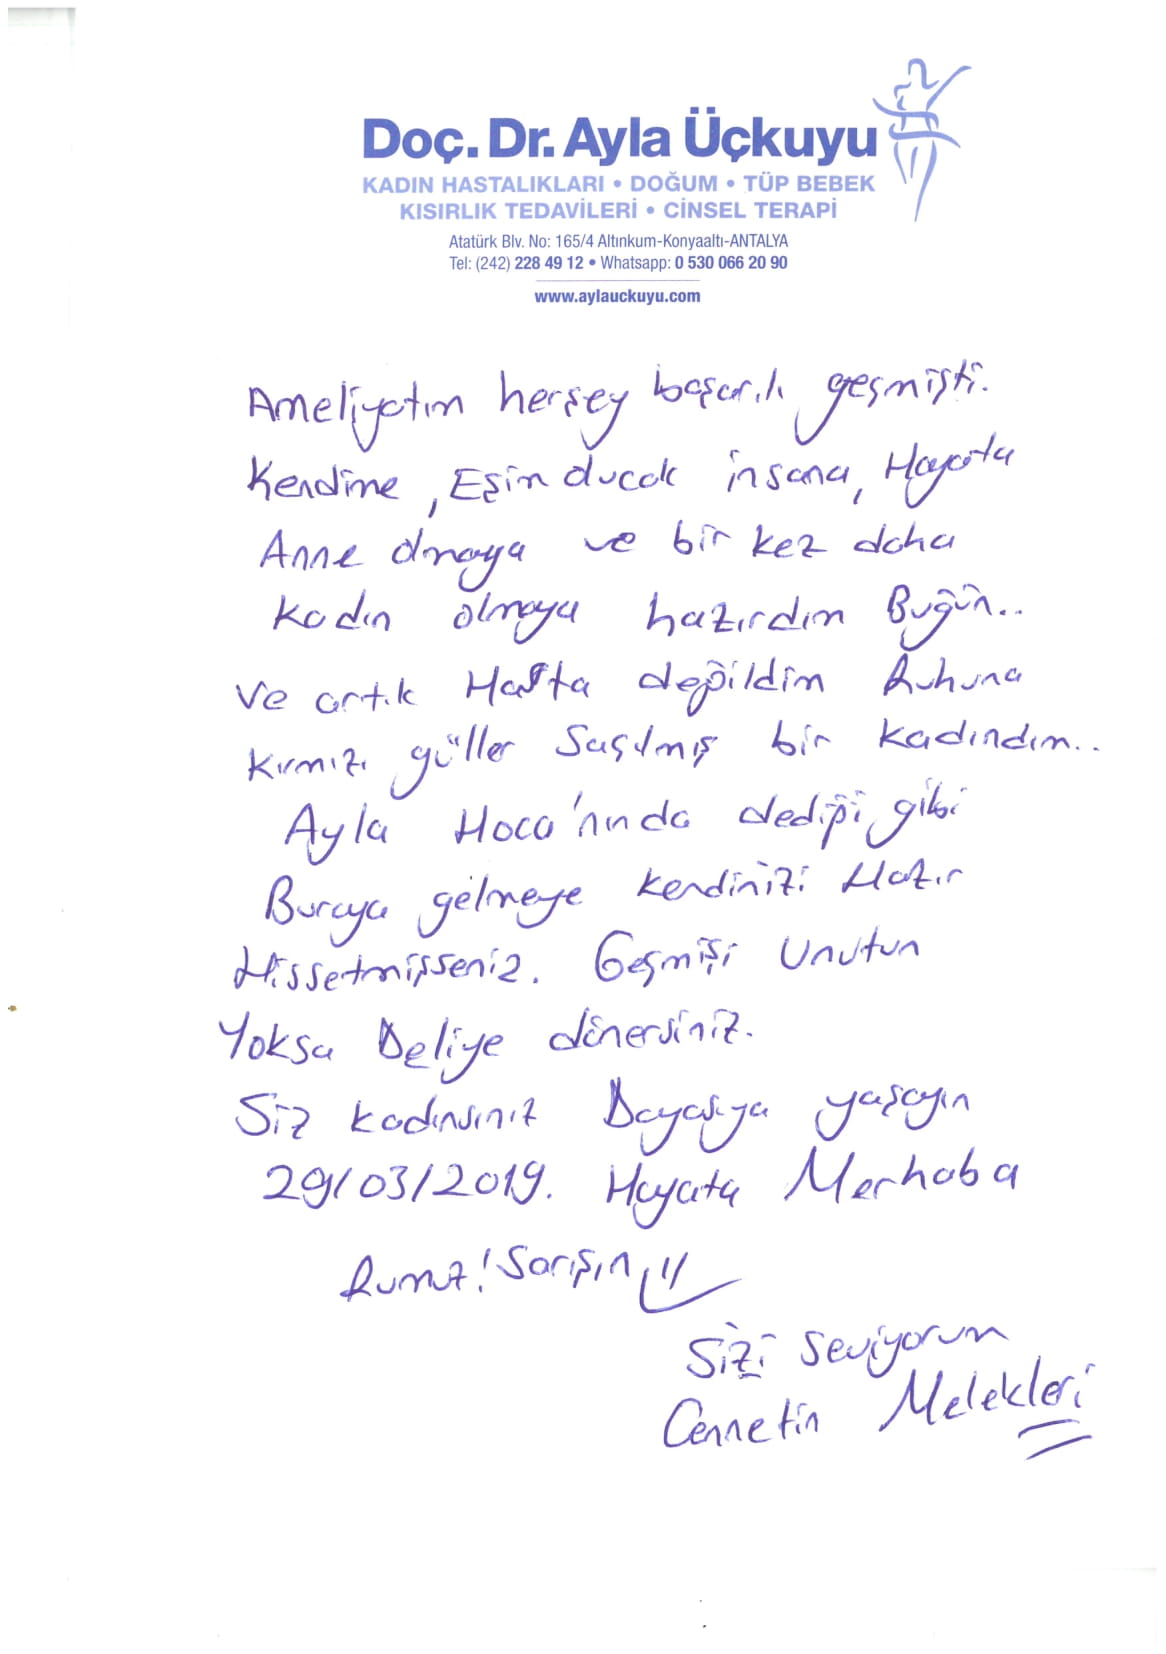 Doç. Dr. Ayla Üçkuyu
KADIN HASTALIKLARI • DOĞUM • TÜP BEBEK
KISIRLIK TEDAVİLERİ • CİNSEL TERAPİ
Atatürk Blv. No: 165/4 Altınkum-Konyaaltı-ANTALYA
Tel: (242) 228 49 12 • Whatsapp: 0 530 066 20 90
www.aylauckuyu.com
Ameliyatım herşey başarılı geçmişti.
Kendime, Eşim olucak insana, Hayata
Anne olmaya ve bir kez daha
kadın olmaya hazırdım Bugün..
Ve artık Hasta değildim Ruhuna
kırmızı güller Saçılmış bir kadındım..
Ayla Hoca'nında dediği gibi
Buraya gelmeye kendinizi Hazır
Hissetmişseniz. Geçmişi Unutun
Yoksa Deliye dönersiniz.
Siz kadınsınız Doyasıya yaşayın
29/03/2019. Hayata Merhaba
Rumuz! Sarışın
Sizi Seviyorum
Cennetin Melekleri